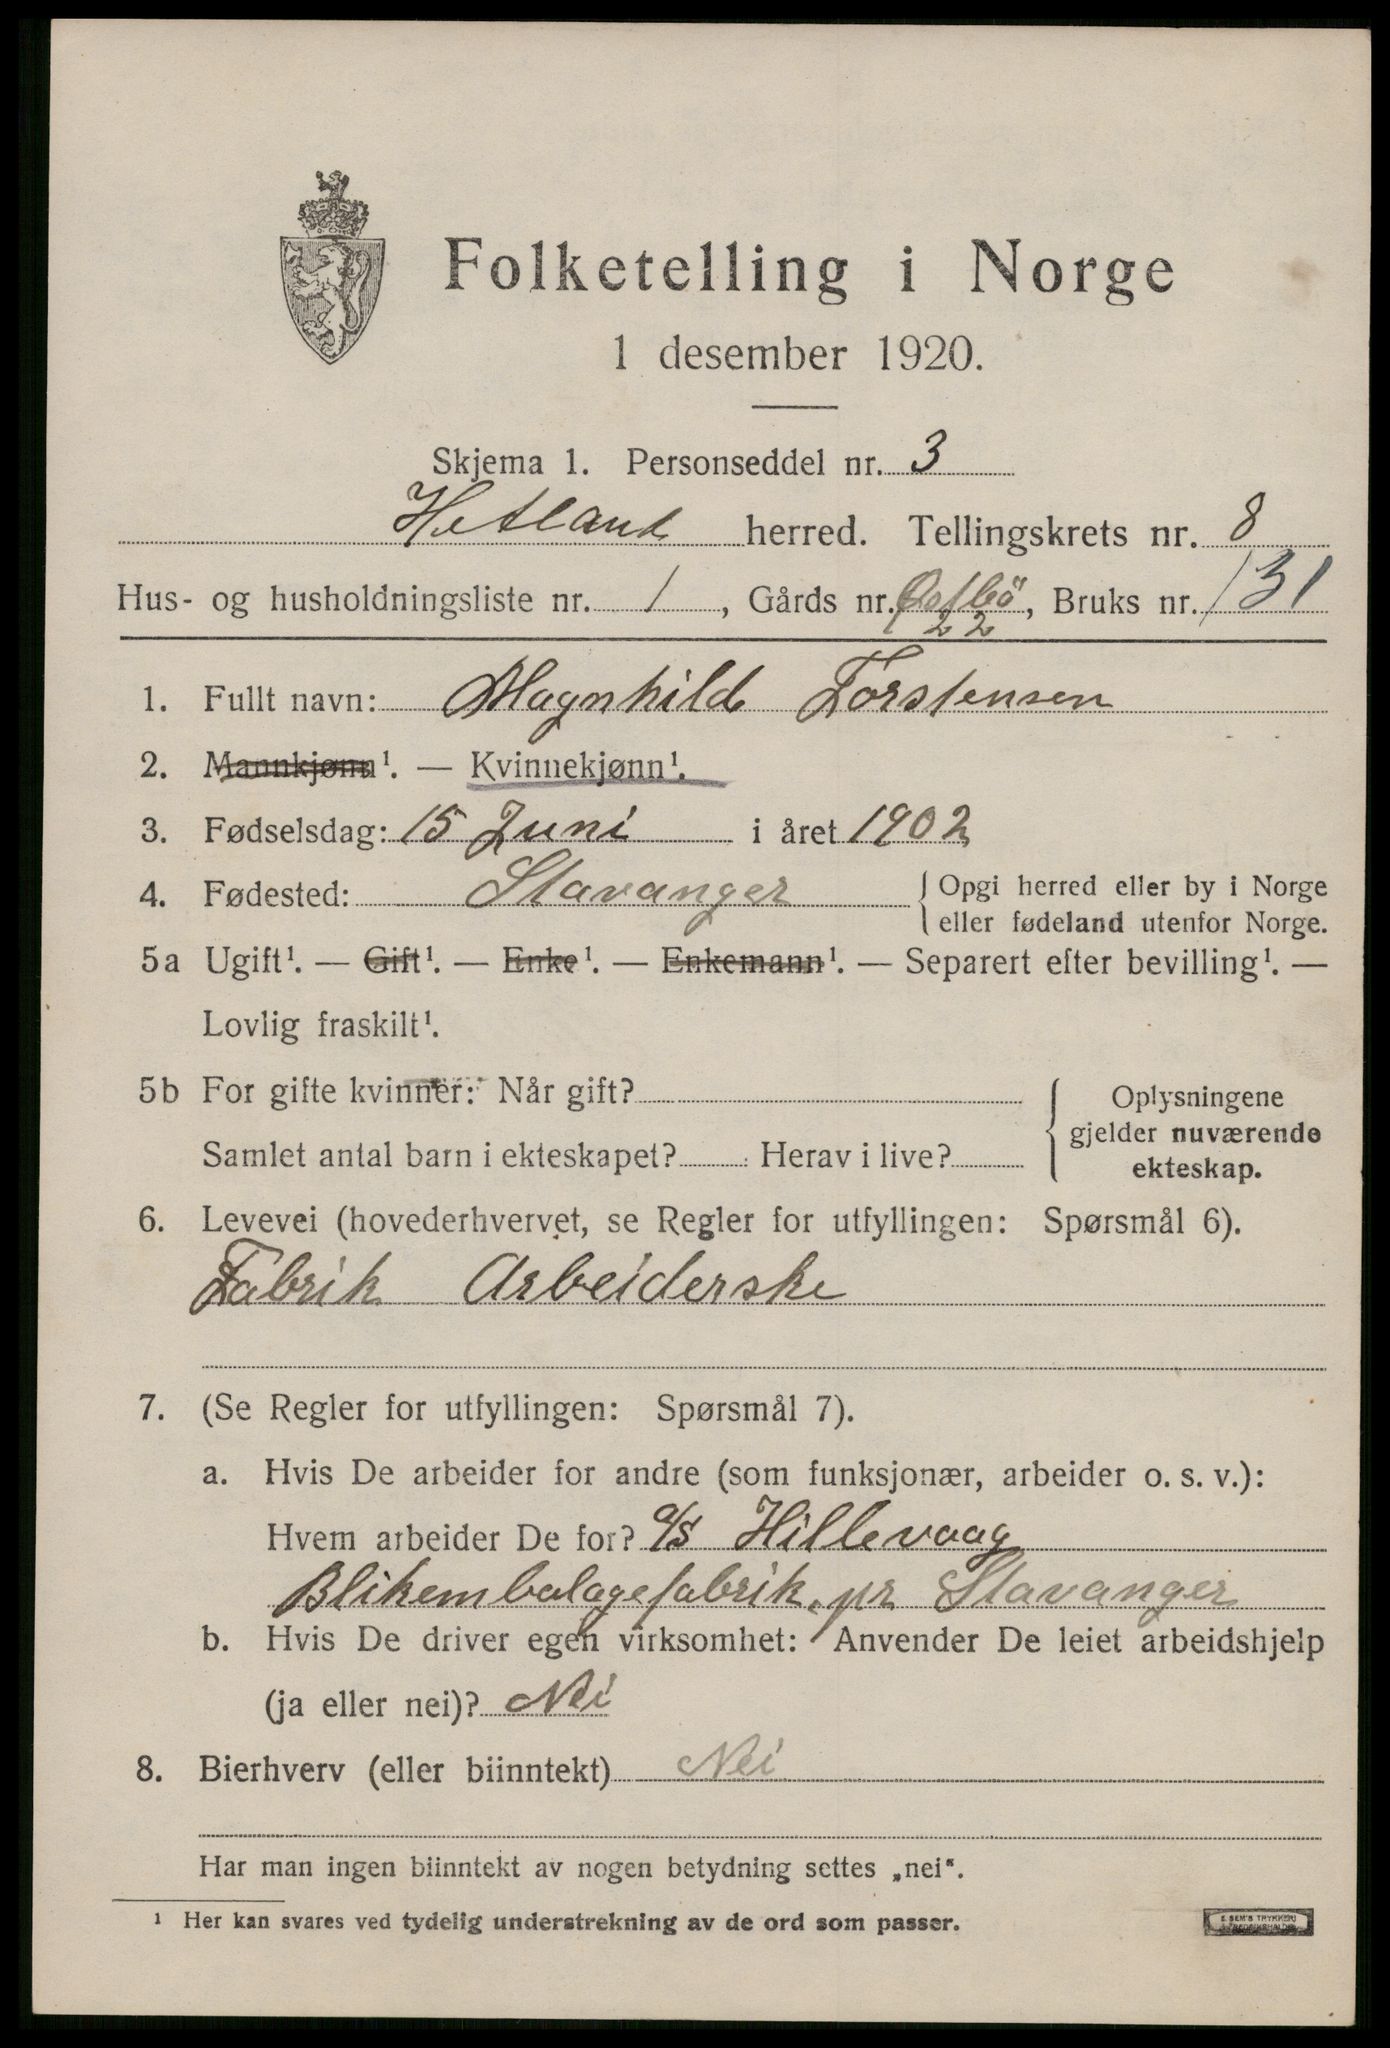 Folketelling i Norge
1 desember 1920.
Skjema 1. Personseddel nr. 3
Hetland herred. Tellingskrets nr. 8
Hus- og husholdningsliste nr. 1, Gårds nr. Østbö, Bruks nr. 131
22
1. Fullt navn: Magnhild Torstensen
2. Mannkjønn¹. — Kvinnekjønn¹.
3. Fødselsdag: 15 Juni i året 1902
4. Fødested: Stavanger { Opgi herred eller by i Norge
eller fødeland utenfor Norge.
5a Ugift¹. — Gift¹. — Enke¹. — Enkemann¹. — Separert efter bevilling¹. —
Lovlig fraskilt¹.
5b For gifte kvinner: Når gift? { Oplysningene
gjelder nuværende
Samlet antal barn i ekteskapet? Herav i live?
ekteskap.
6. Levevei (hovederhvervet, se Regler for utfyllingen: Spørsmål 6).
Fabrik Arbeiderske
7. (Se Regler for utfyllingen: Spørsmål 7).
a. Hvis De arbeider for andre (som funksjonær, arbeider o. s. v.):
Hvem arbeider De for? a/s Hillevaag
Blikembalagefabrik, pr Stavanger
b. Hvis De driver egen virksomhet: Anvender De leiet arbeidshjelp
(ja eller nei)? Nei
8. Bierhverv (eller biinntekt) Nei
Har man ingen biinntekt av nogen betydning settes „nei".
¹ Her kan svares ved tydelig understrekning av de ord som passer.
E. SEM'S TRYKKERI
FREDRIKSHALD